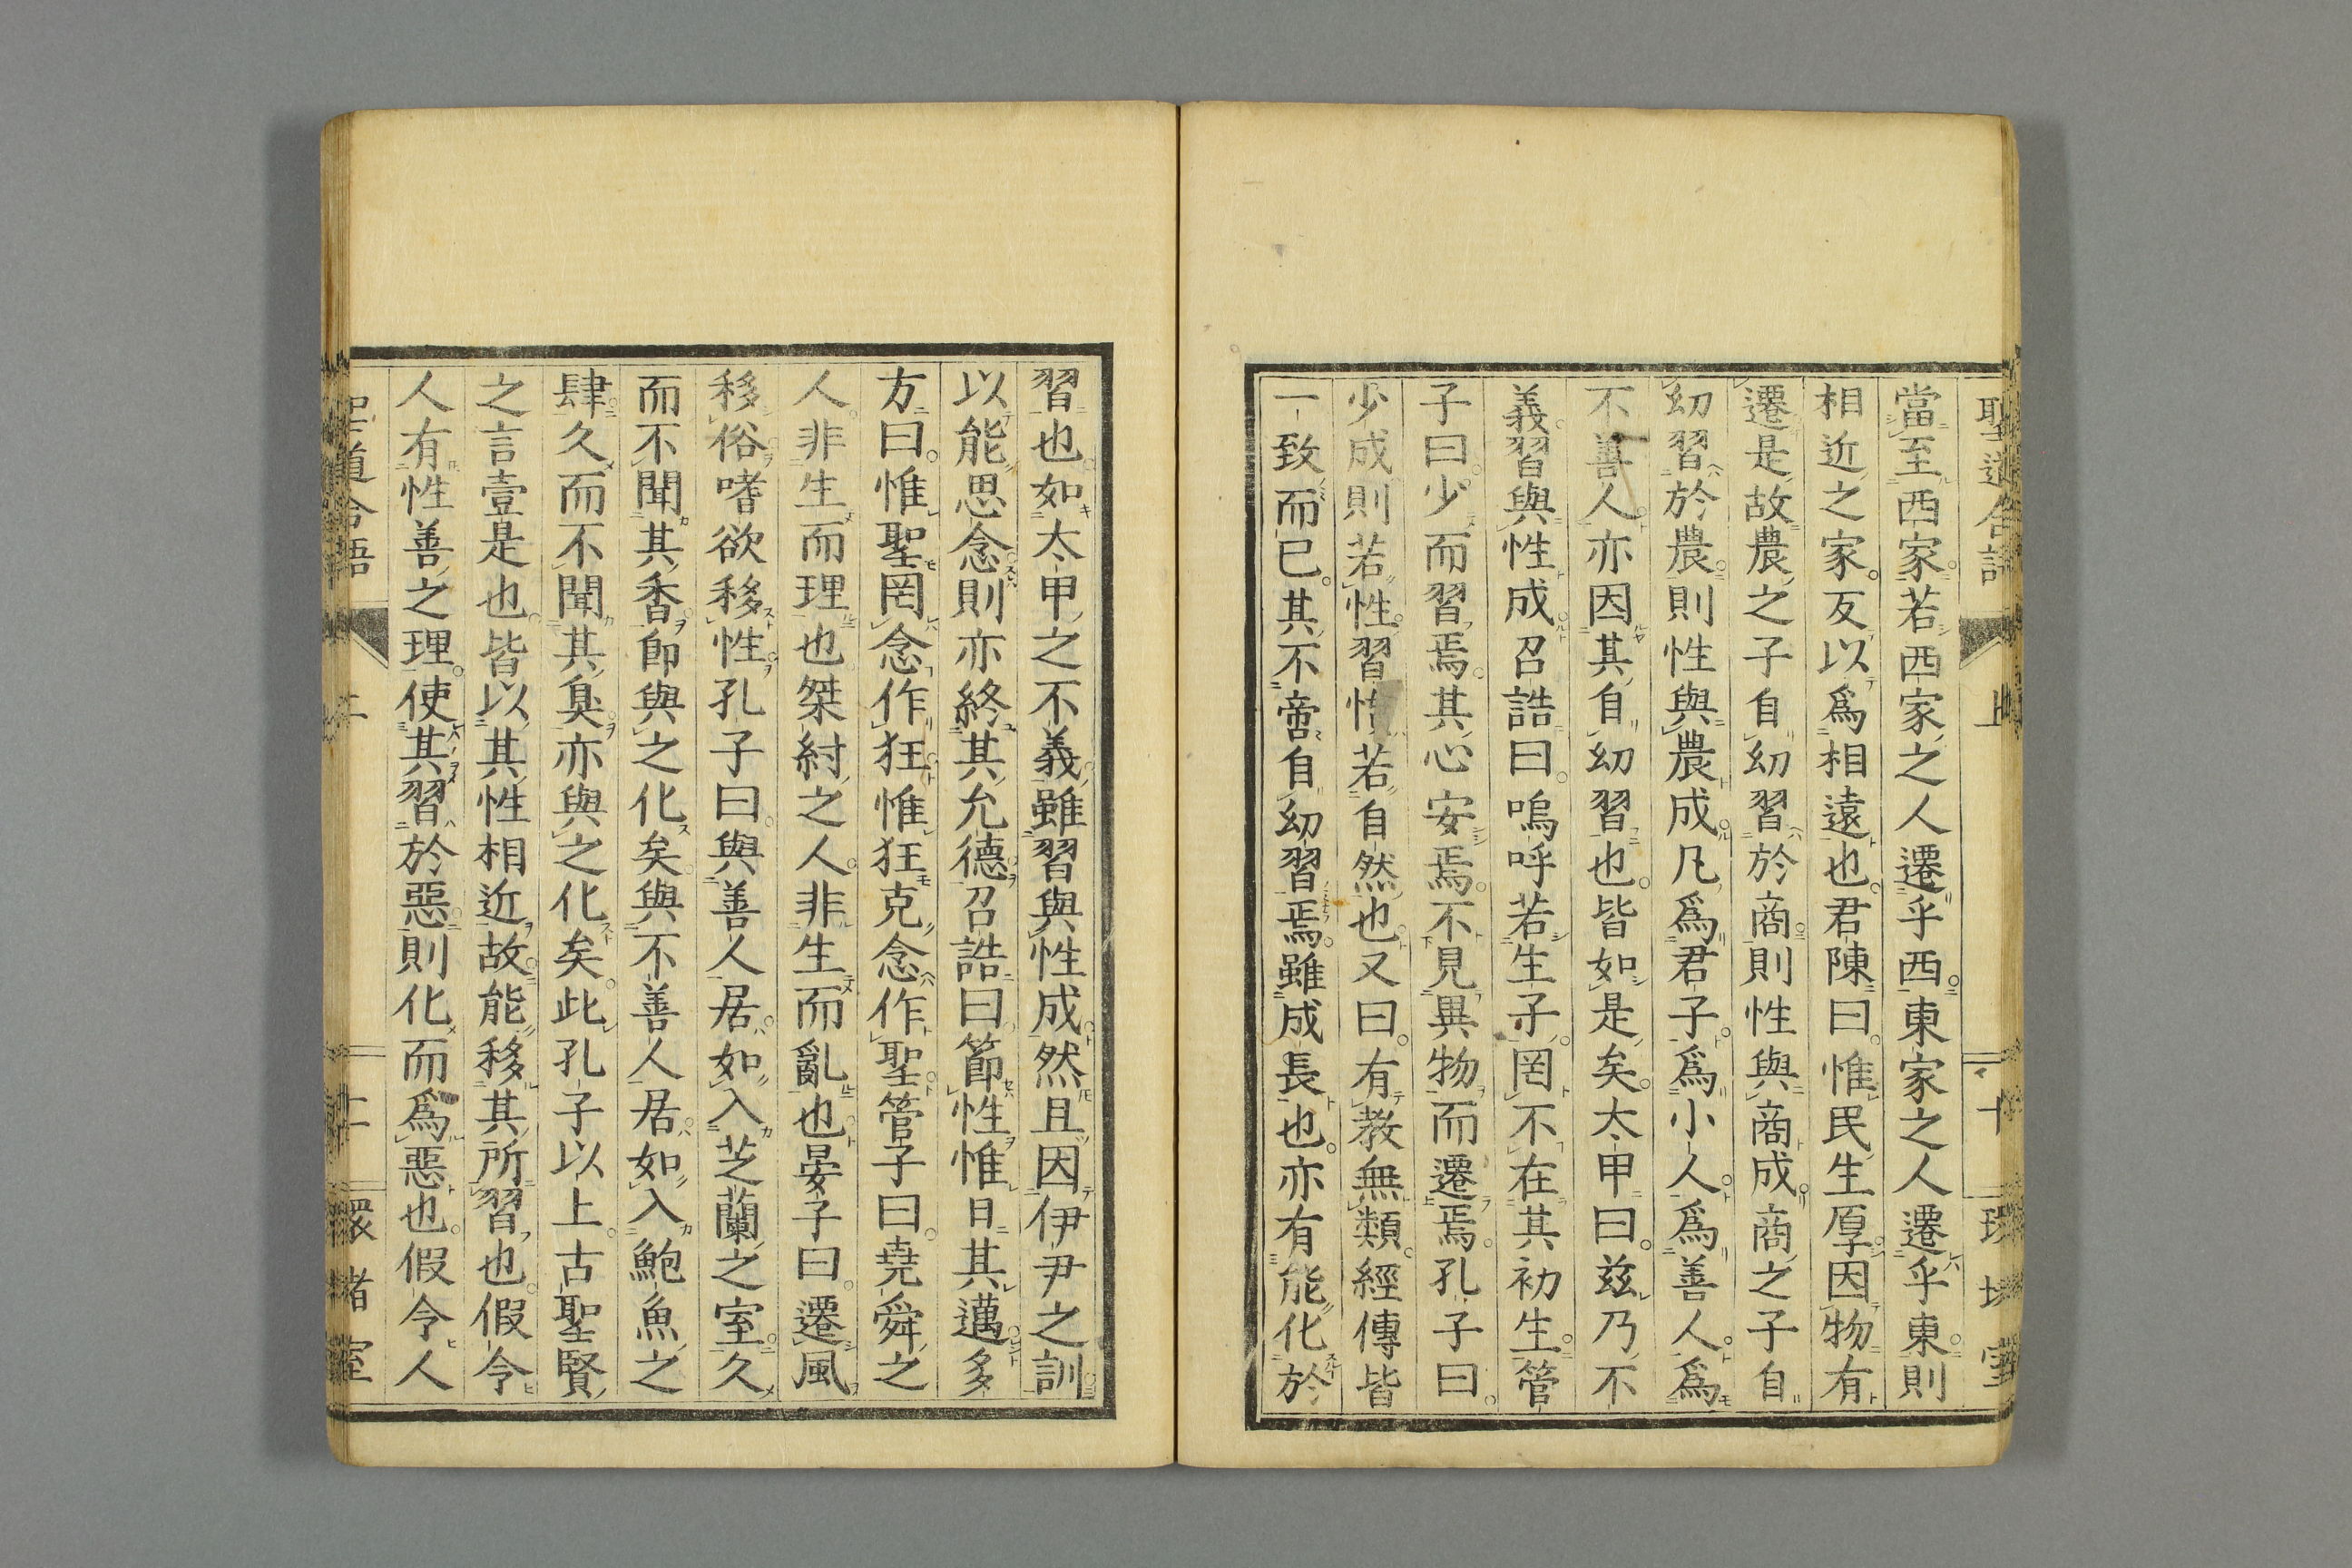 聖道合語 上 十 環堵室
當至西家若西家之人遷乎西東家之人遷乎東則
相近之家反以爲相遠也君陳曰惟民生厚因物有
遷是故農之子自幼習於商則性與商成商之子自
幼習於農則性與農成凡爲君子爲小人爲善人爲
不善人亦因其自幼習也皆如是矣太甲曰茲乃不
義習與性成召誥曰嗚呼若生子罔不在其初生管
子曰少而習焉其心安焉不見異物而遷焉孔子曰
少成則若性習慣若自然也又曰有教無類經傳皆
一致而已其不啻自幼習焉雖成長也亦有能化於
習也如太甲之不義雖習與性成然且因伊尹之訓
以能思念則亦終其允德召誥曰節性惟日其邁多
方曰惟聖罔念作狂惟狂克念作聖管子曰堯舜之
人非生而理也桀紂之人非生而亂也晏子曰遷風
移俗嗜欲移性孔子曰與善人居如入芝蘭之室久
而不聞其香卽與之化矣與不善人居如入鮑魚之
肆久而不聞其臭亦與之化矣此孔子以上古聖賢
之言壹是也皆以其性相近故能移其所習也假令
人有性善之理使其習於惡則化而爲惡也假令人
聖道合語 上 環堵室